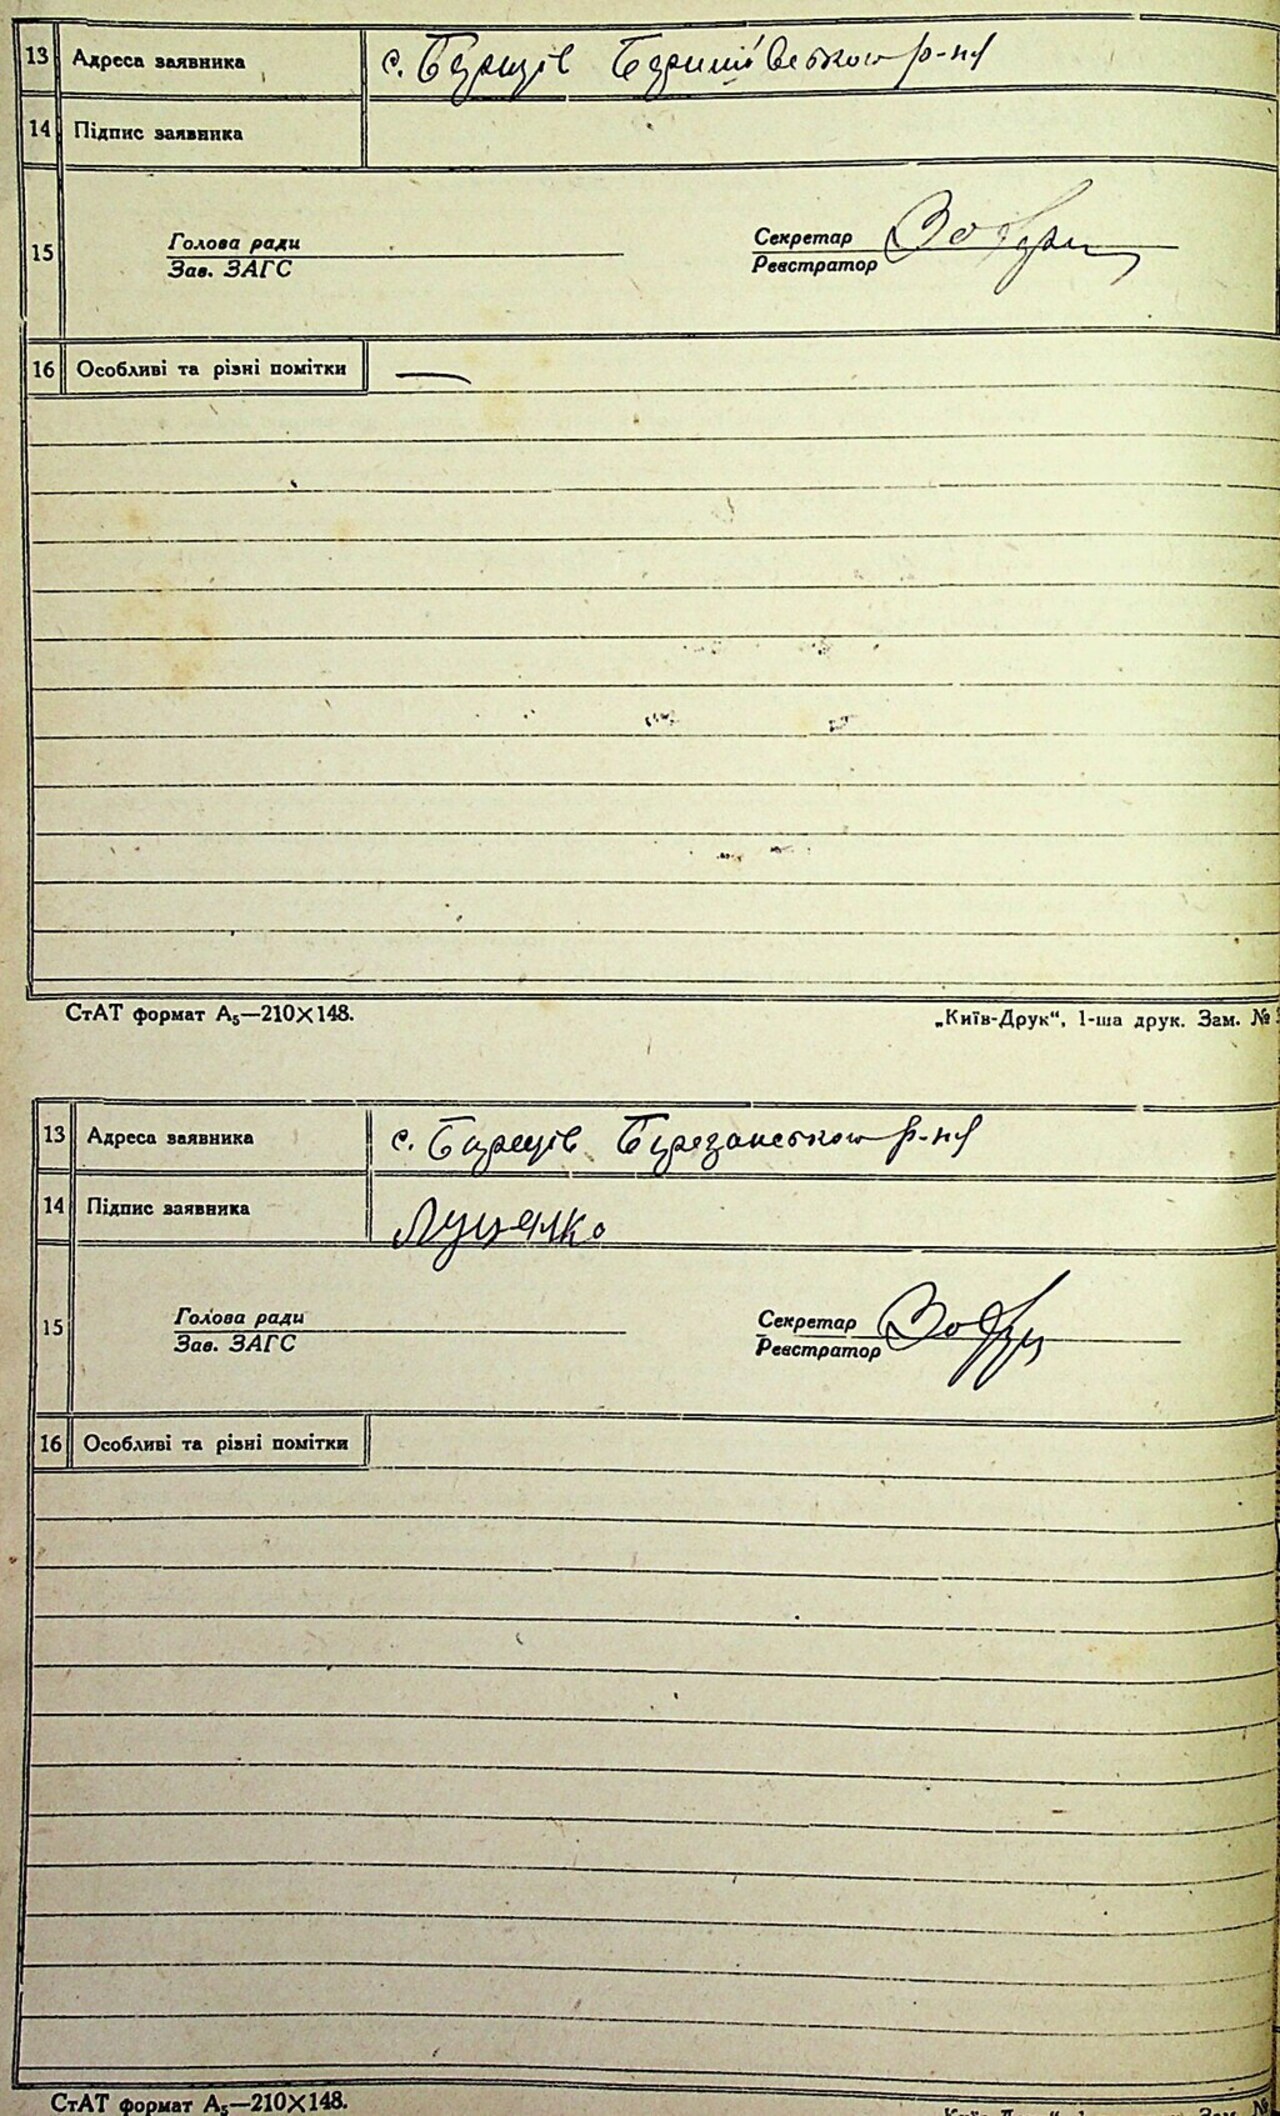 13 Адреса заявника с. Борщів Баришівського р-ну
14 Підпис заявника
15 Голова ради Секретар
Зав. ЗАГС Реєстратор
16 Особливі та різні помітки —
СтАТ формат А₅—210×148. „Київ-Друк“, 1-ша друк. Зам. №
13 Адреса заявника с. Борщів Березанського р-ну
14 Підпис заявника Луценко
15 Голова ради Секретар
Зав. ЗАГС Реєстратор
16 Особливі та різні помітки
СтАТ формат А₅—210×148.